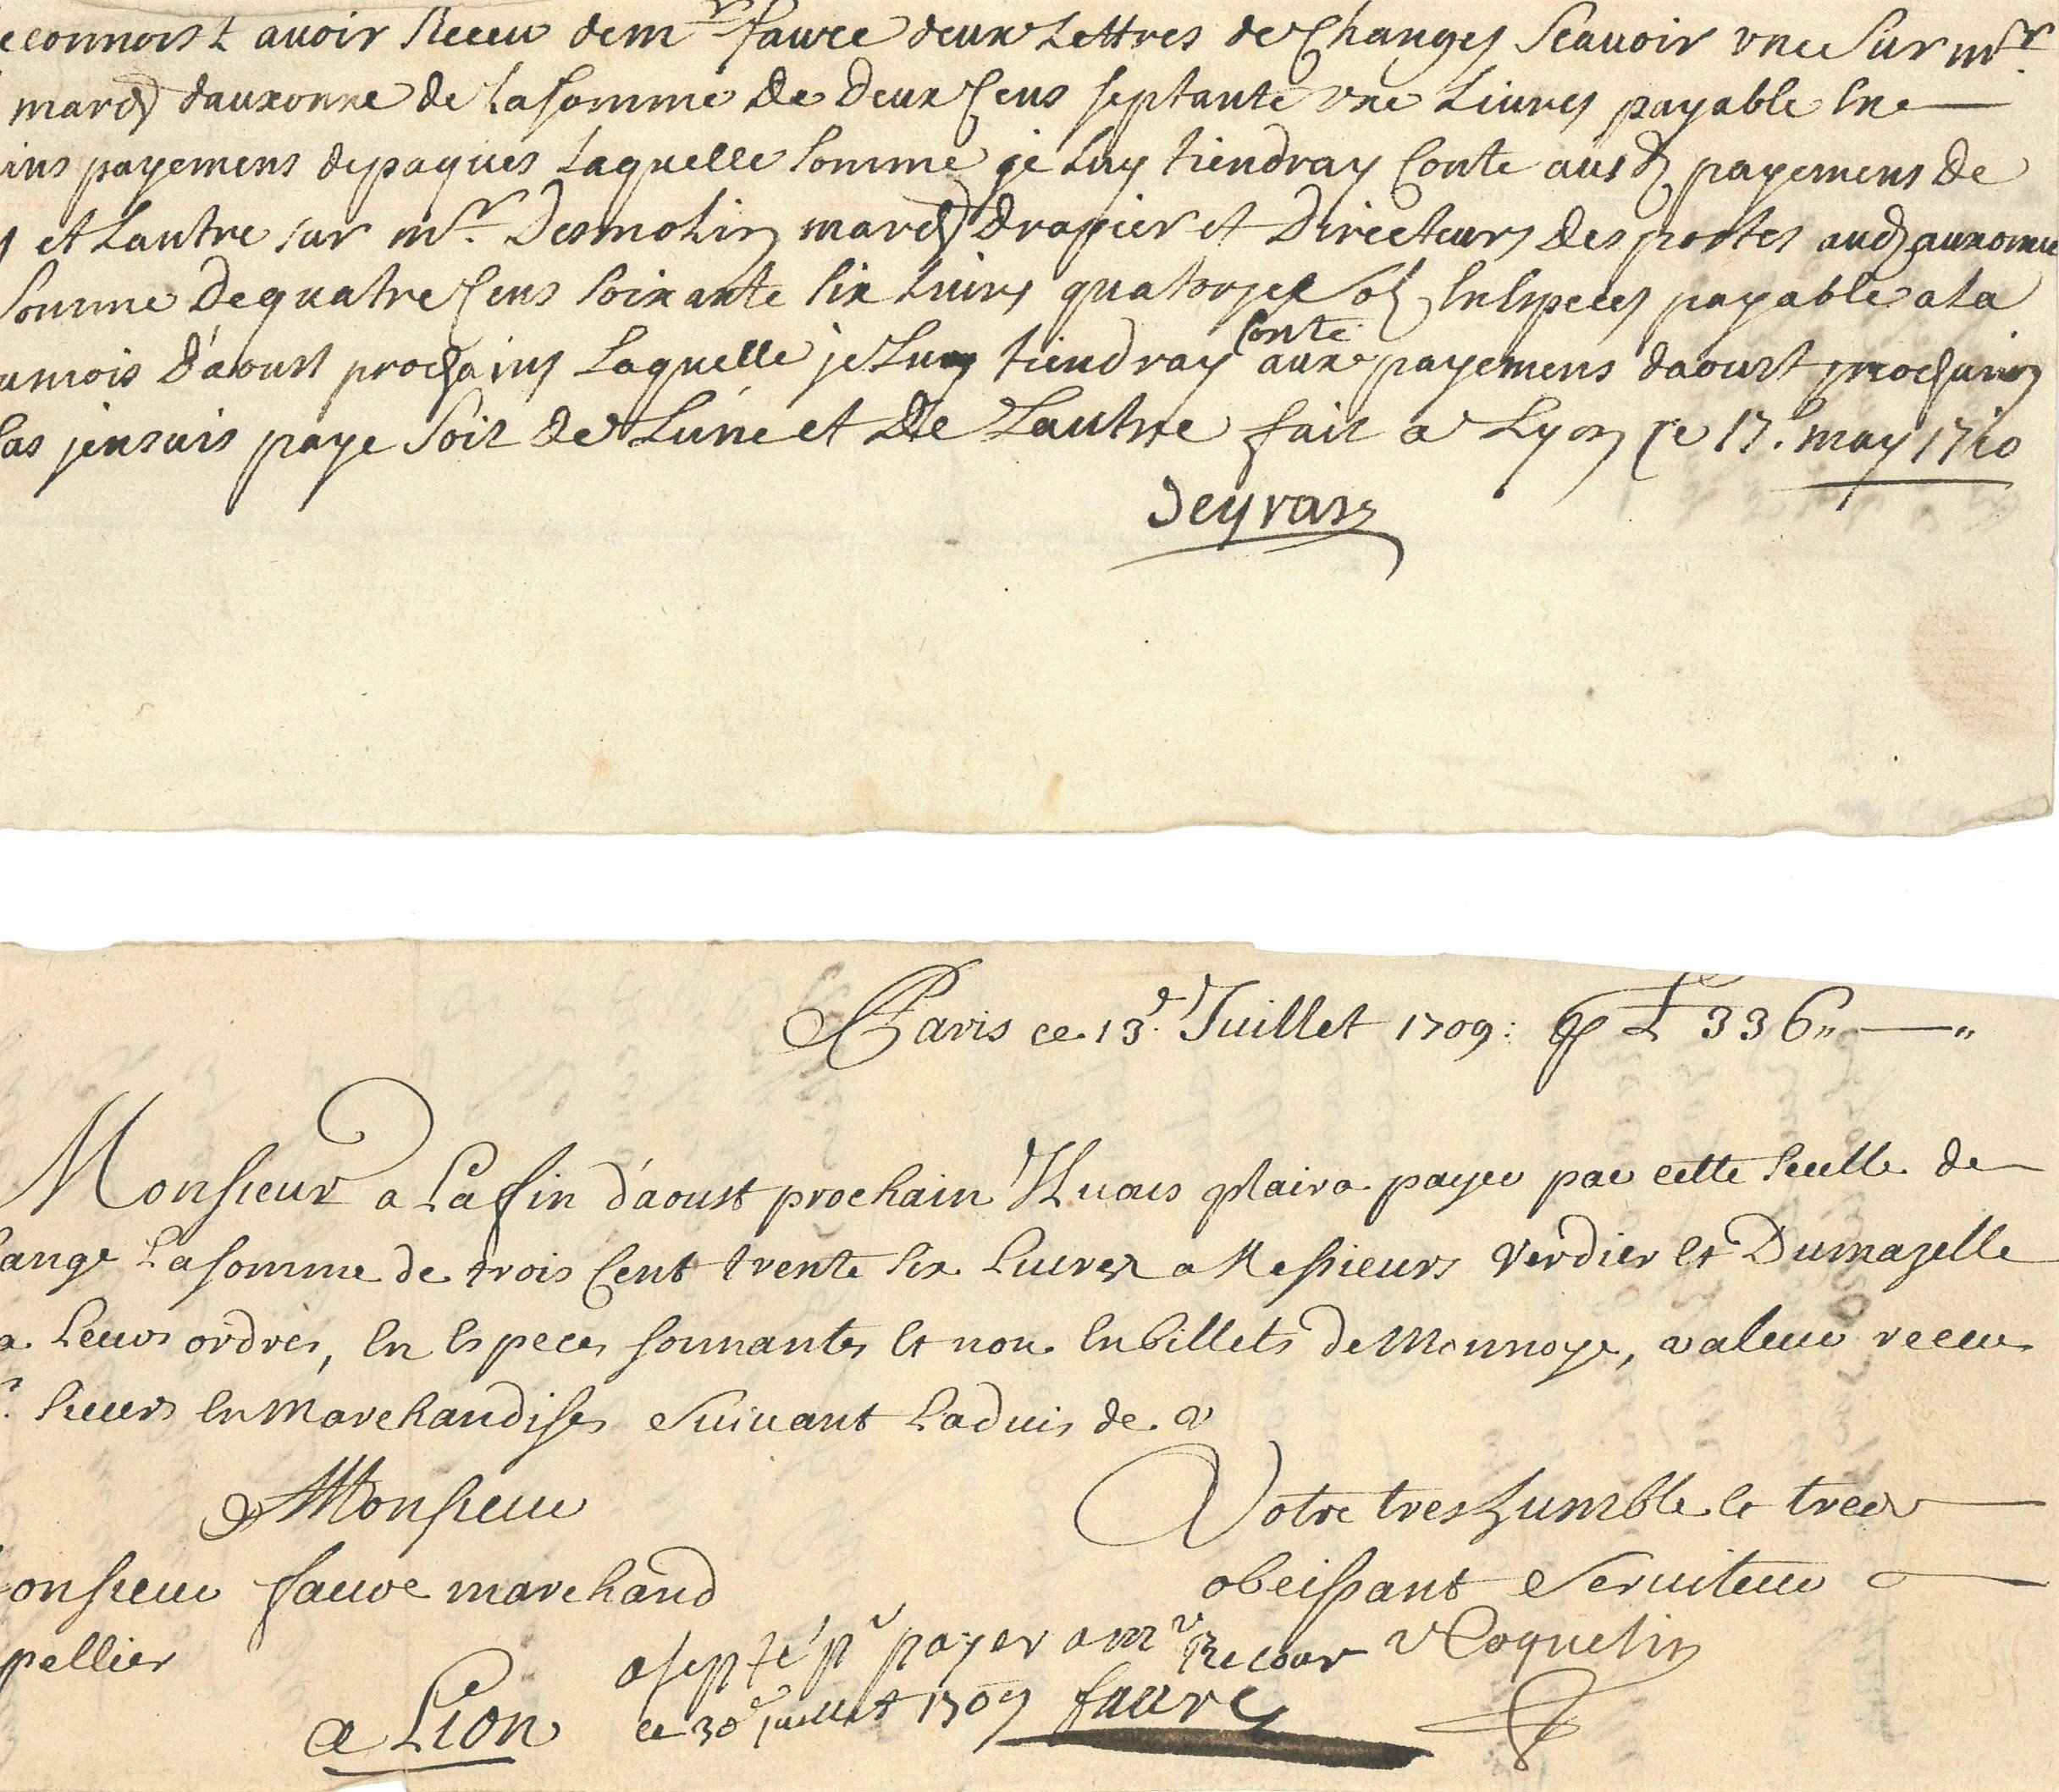 econnoist auoir Receu de mr faure deux Lettres de Changes Scauoir vne Sur mr
march dauxonne de La somme de Deux Cens septante vne Liures payable en
ins payemens de paques Laquelle Somme je Luy tiendray Conte ausd payemens de
et Lautre sur mr. Desmolin march drapier et Directeurs des postes aud auxonne
Somme De quatre Cens Soixante six Liures quatorze sols En Especes payable a La
u mois d'aoust prochains Laquelle je Luy tiendray Conte aux payemens daoust prochain
Cas jen sois paye Soit de Lune et De Lautre fait a Lyon Ce 17. may 1710
Deyras
A Paris ce 13e. Juillet 1709: p L 336,, — ,,
Monsieur a La fin d'aoust prochain Il uous plaira payer par cette seulle de
ange La somme de trois Cent trente six Liures a Messieurs Verdier et Dumazelle
a Leurs ordres, En Especes sonnantes et non En billets de Monnoye, valeur receue
sieurs En Marchandises Suiuant Laduis de
Monsieur
Votre tres humble et tres
onsieur faure marchand
obeissant Seruiteur
pellier
asepté pr payer a mr Recour
Coquelin
a Lion
ce 30e juillet 1709 faure